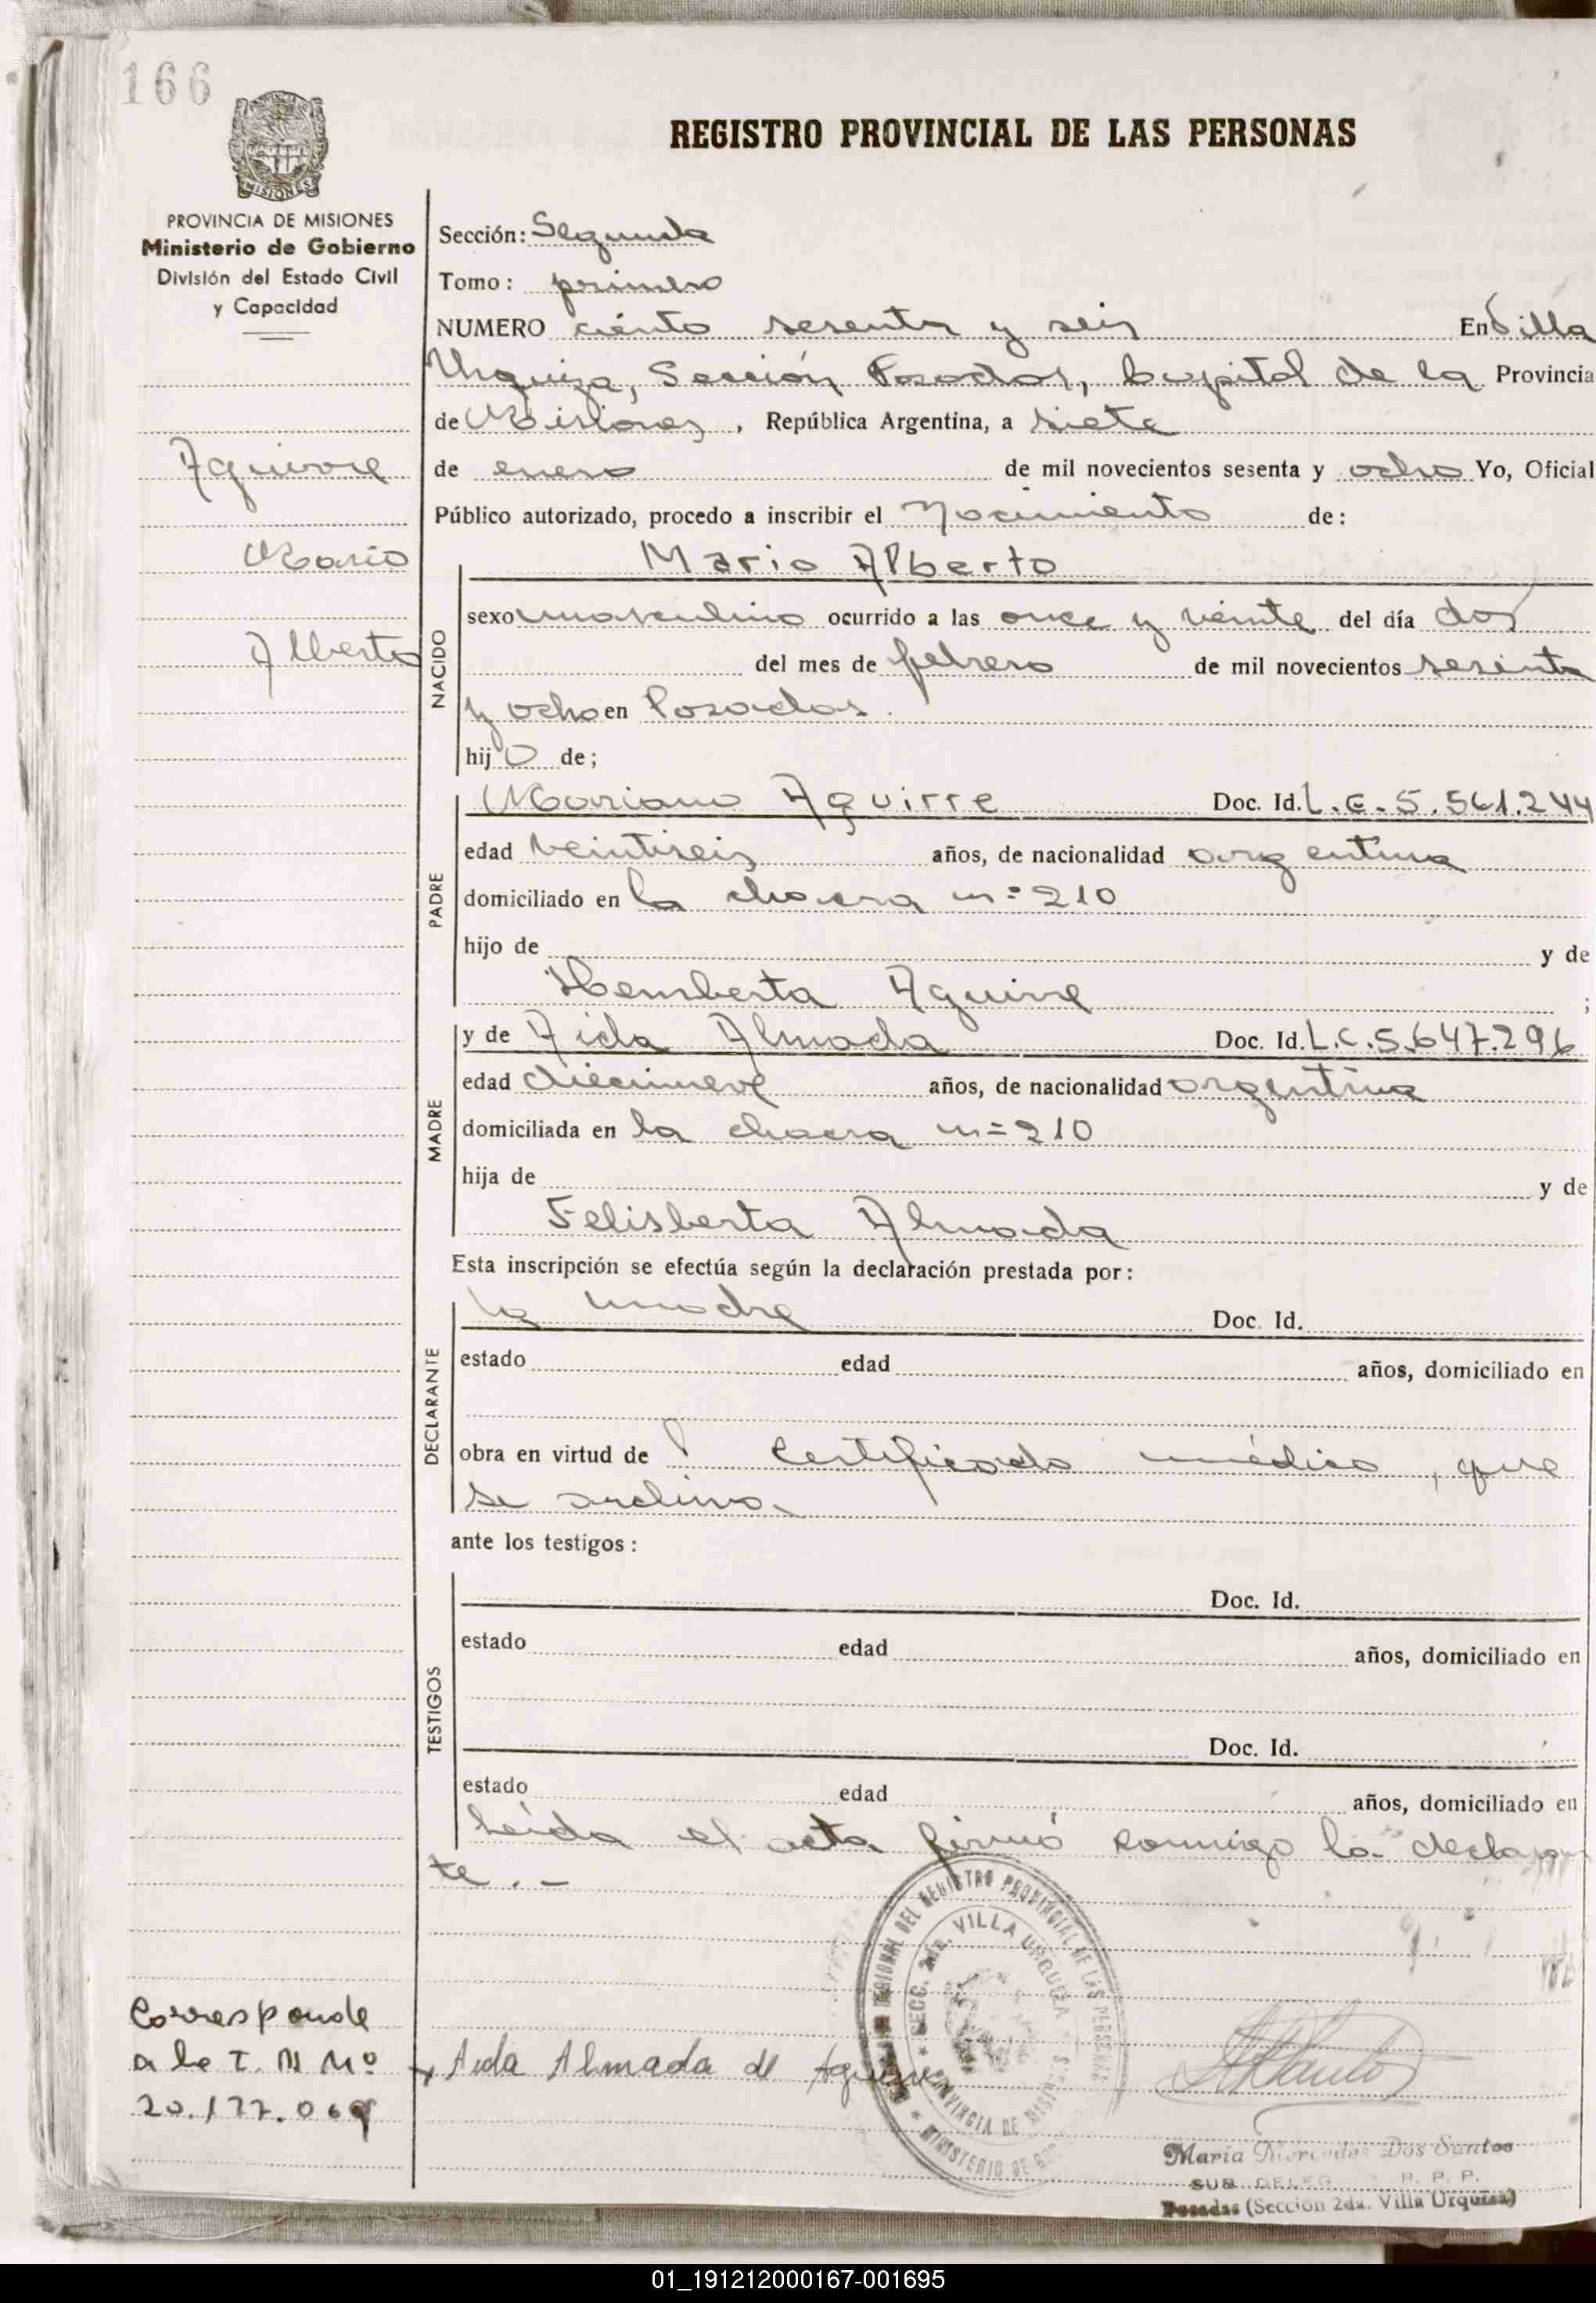 166
MISIONES
PROVINCIA DE MISIONES
Ministerio de Gobierno
División del Estado Civil
y Capacidad
REGISTRO PROVINCIAL DE LAS PERSONAS
Sección: Segunda
Tomo: primero
NUMERO ciento sesenta y seis En Villa
Urquiza, Sección Posadas, Capital de la Provincia
de Misiones, República Argentina, a siete
de enero de mil novecientos sesenta y ocho Yo, Oficial
Público autorizado, procedo a inscribir el Nacimiento de:
Aguirre
Mario
Alberto
NACIDO
Mario Alberto
sexo masculino ocurrido a las once y veinte del día dos
del mes de febrero de mil novecientos sesenta
y ocho en Posadas.
hijo de;
PADRE
Mariano Aguirre Doc. Id. L.E. 5.561.244
edad veintiseis años, de nacionalidad argentina
domiciliado en la chacra nº 210
hijo de y de
Hemberta Aguirre ;
MADRE
y de Aida Almada Doc. Id. L.C. 5.647.296
edad diecinueve años, de nacionalidad argentina
domiciliada en la chacra nº 210
hija de y de
Felisberta Almada
Esta inscripción se efectúa según la declaración prestada por:
DECLARANTE
la madre Doc. Id.
estado edad años, domiciliado en
obra en virtud de l certificado médico, que
se archiva.
ante los testigos:
TESTIGOS
Doc. Id.
estado edad años, domiciliado en
Doc. Id.
estado edad años, domiciliado en
Leída el acta firmó conmigo la declaran
te.-
Corresponde
a la T. Nº
20.177.069
Aida Almada de Aguirre
REGIONAL DEL REGISTRO PROVINCIAL DE LAS PERSONAS
SECC. 2da. VILLA URQUIZA
PROVINCIA DE MISIONES
MINISTERIO DE
María Mercedes Dos Santos
SUB. DELEG. R. P. P.
Posadas (Sección 2da. Villa Urquiza)
01_191212000167-001695